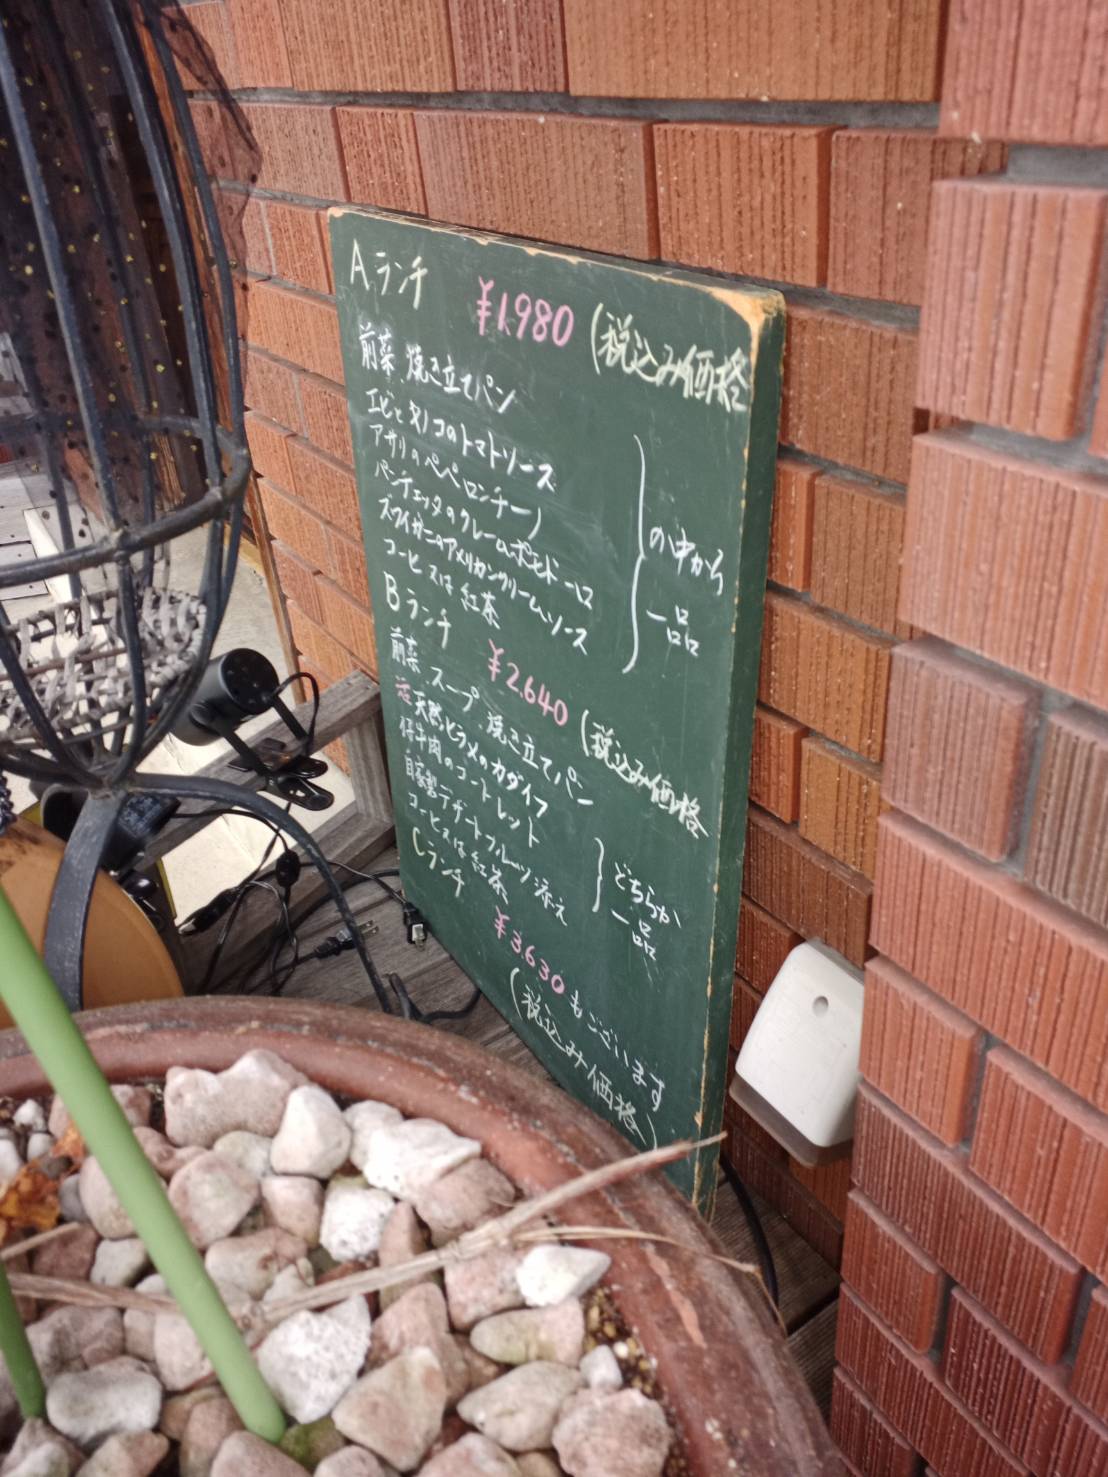 Aランチ ¥1,980 (税込み価格
前菜、焼き立てパン
エビとキノコのトマトソース
アサリのペペロンチーノ
パンチェッタのクレームポモドーロ
ズワイガニのアメリカンクリームソース
の中から
一品
コーヒー又は紅茶
Bランチ ¥2,640 (税込み価格
前菜、スープ、焼き立てパン
天然ヒラメのカダイフ
仔牛肉のコートレット
どちらか
一品
自家製デザートフルーツ添え
コーヒー又は紅茶
Cランチ ¥3,630 もございます
(税込み価格)